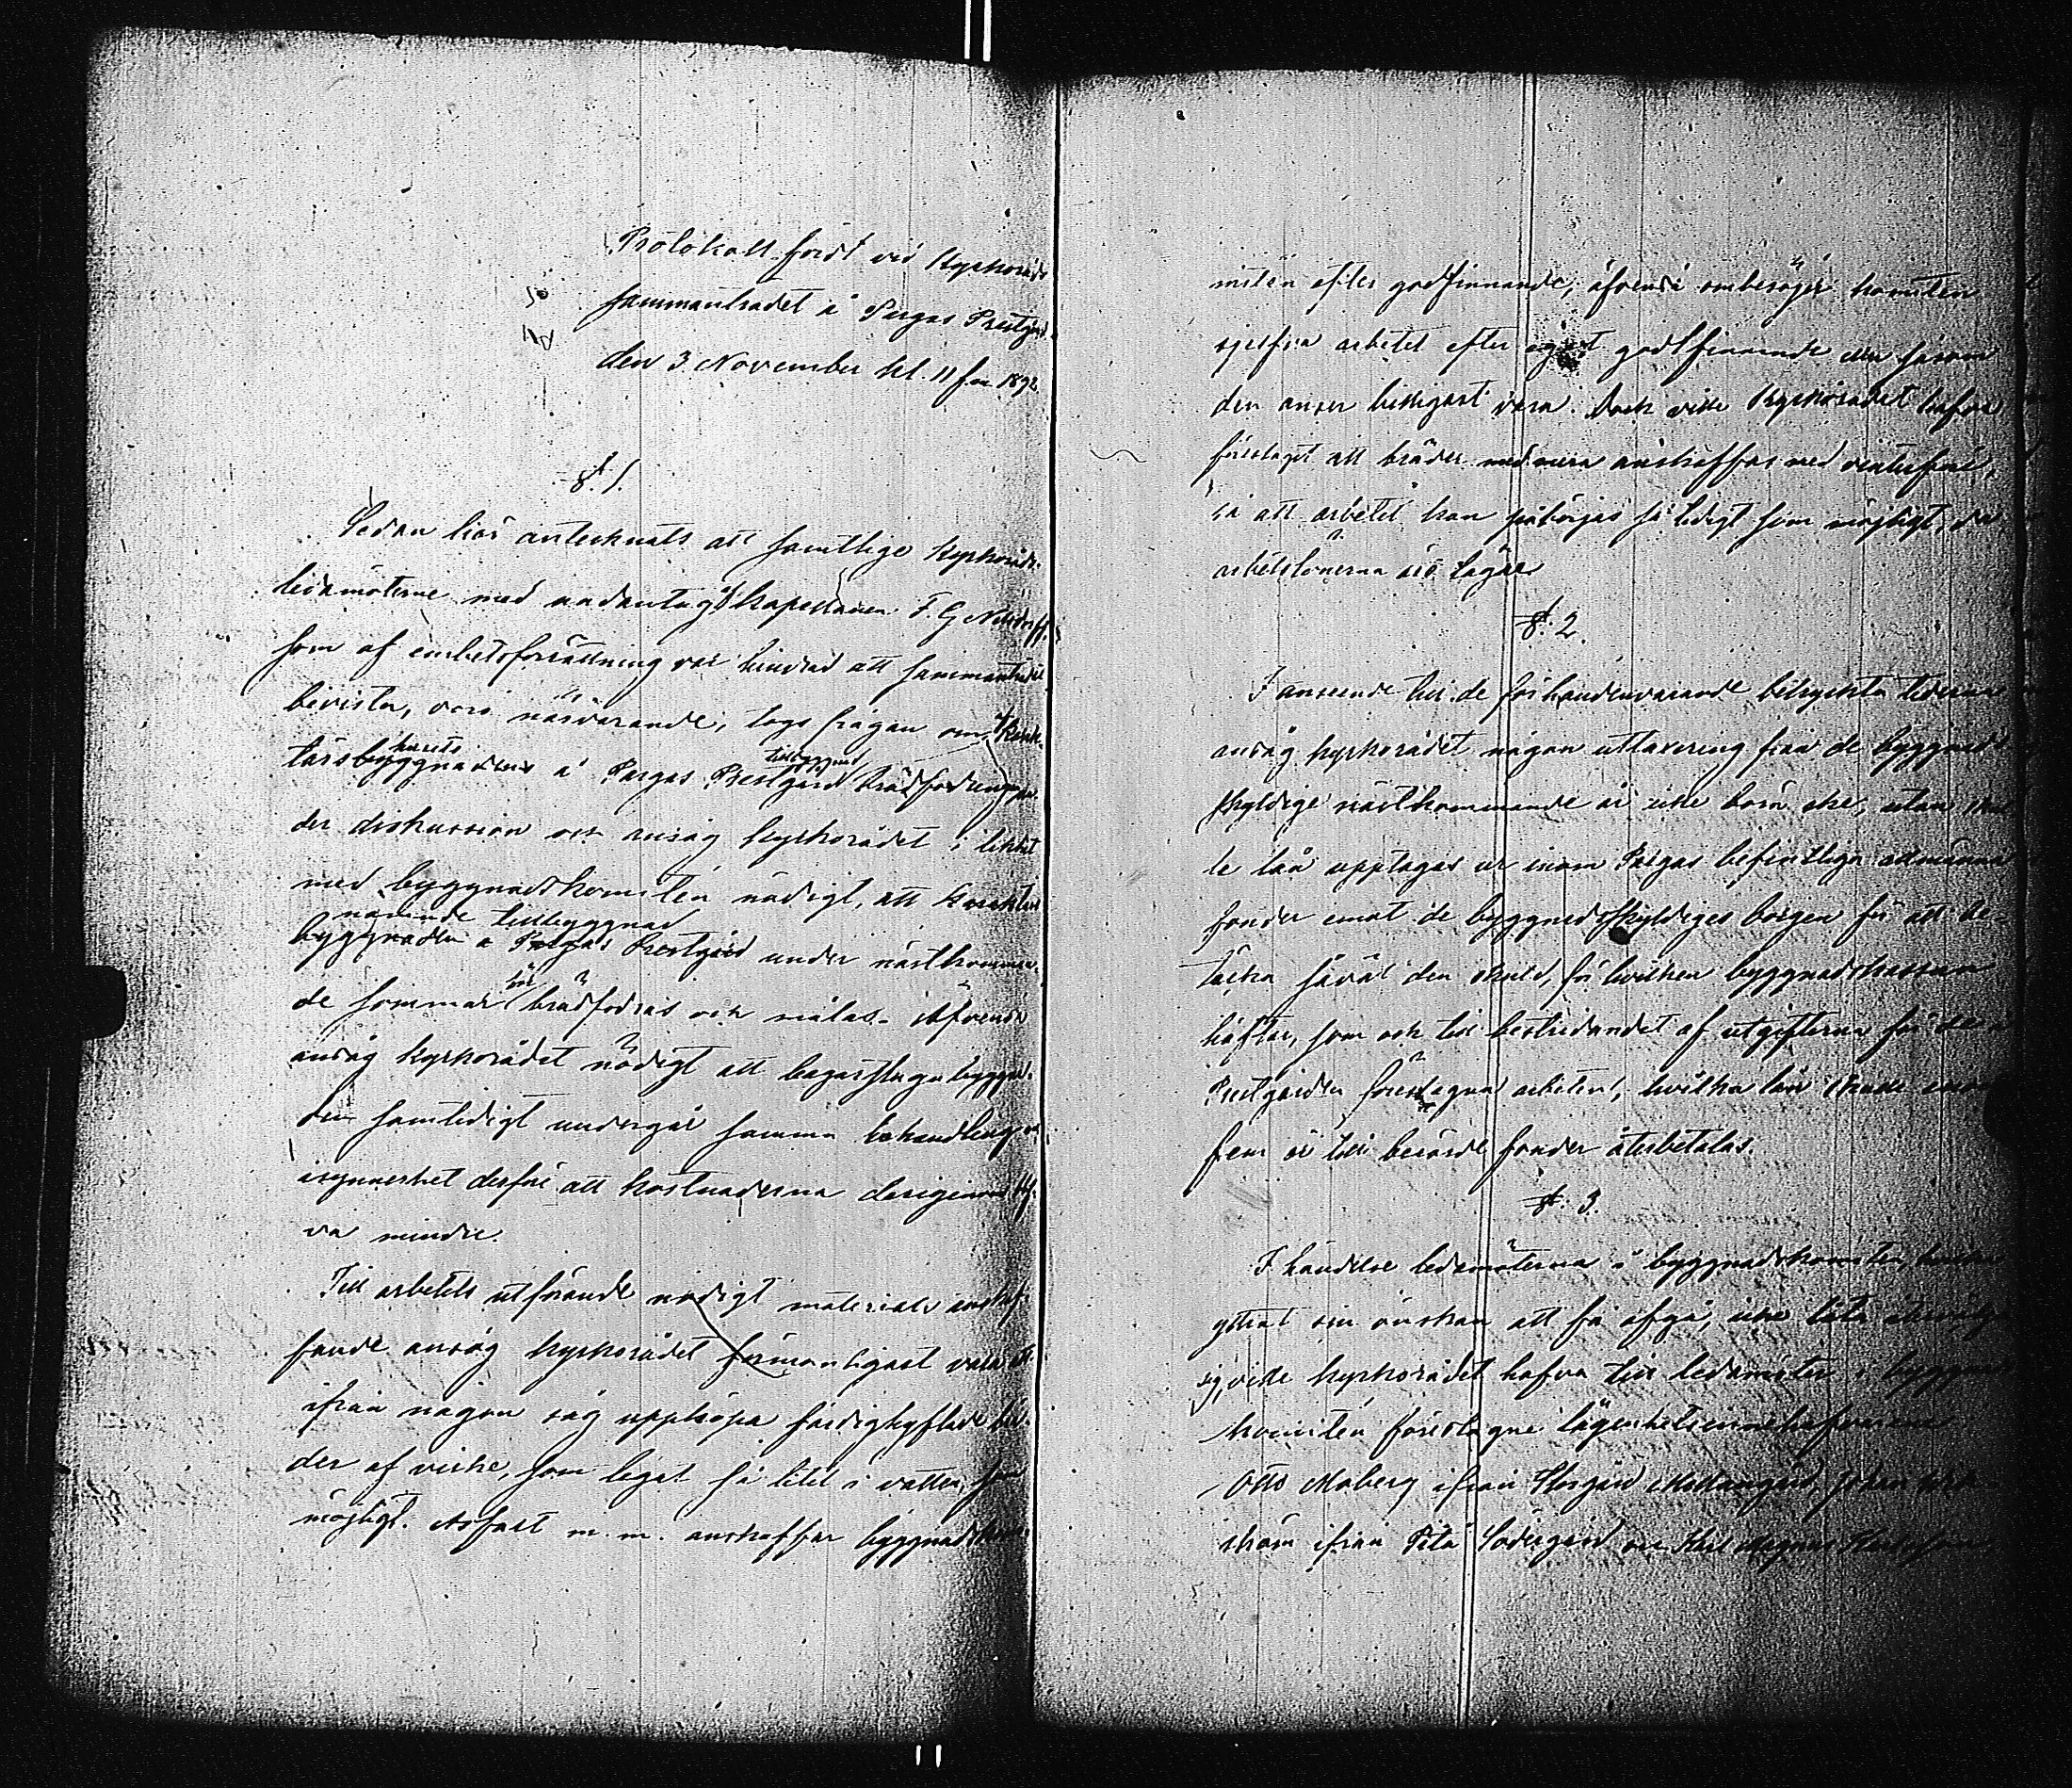 Protokoll fördt vid Kyrkoråds
sammanträdet å Pargas Prestgård
den 3 November kl. 11 f.m. 1892.
§. 1.
Sedan här antecknats att samtlige Kyrkoråds-
ledamöterne med undantag kapellanen F. G.
som af embetsförrättning var hindrad att sammanträdet
bevista, voro närvarande, togs frågan om
husets tillbyggnad
byggnaden å Pargas Prestgård brädfodring un-
der diskussion och ansåg kyrkorådet i likhet
med byggnadskomitén nödigt, att
nämnde tillbyggnad
byggnaden å Pargas Prestgård under nästkomman-
de sommar brädfodras och målas. Äfvenså
ansåg kyrkorådet nödigt att bagarstugubyggna-
den samtidigt undergår samma behandling
isynnerhet derför att kostnaderna derigenom blif-
va mindre.
Till arbetets utförande nödigt materials anskaf-
fande ansåg kyrkorådet förmånligast vara att
ifrån någon såg uppköpa färdighyflade brä-
der af virke, som legat så litet i vatten, som
möjligt. Asfalt m. m. anskaffar byggnadskom-
mitén efter godtfinnande, äfvenså ombesörjer komitén
sjelfva arbetet efter eget godtfinnande eller såsom
den anser billigast vara. Dock ville Kyrkorådet hafva
föreslaget att bräder med mera anskaffas med vinterföre,
så att arbetet kan påbörjas så tidigt som möjligt, då
arbetslönerna äro lägre.
§. 2.
I anseende till de förhandenvarande betryckta tiderna
ansåg kyrkorådet någon uttaxering från de byggnads-
skyldige nästkommande år icke böra ske, utan skul-
le lån upptagas ur inom Pargas befintliga allmänna
fonder emot de byggnadsskyldiges borgen för att be-
täcka såväl den skuld, för hvilken byggnadskassan
häftar, som och till bestridandet af utgifterna för de å
Prestgården företagna arbeten, hvilka lån skulle inom
fem år till berörde fonder återbetalas.
§. 3.
I händelse ledamöterna i byggnadskomitén, hvilka
yttrat sin önskan att få afgå, icke låta
sig, ville kyrkorådet hafva till ledamöter i byggnads-
komitén föreslagne lägenhetsinnehafvarena
Otto Moberg ifrån Storgård Mellangård, Johan
ström ifrån Södergård och Karl Magnus